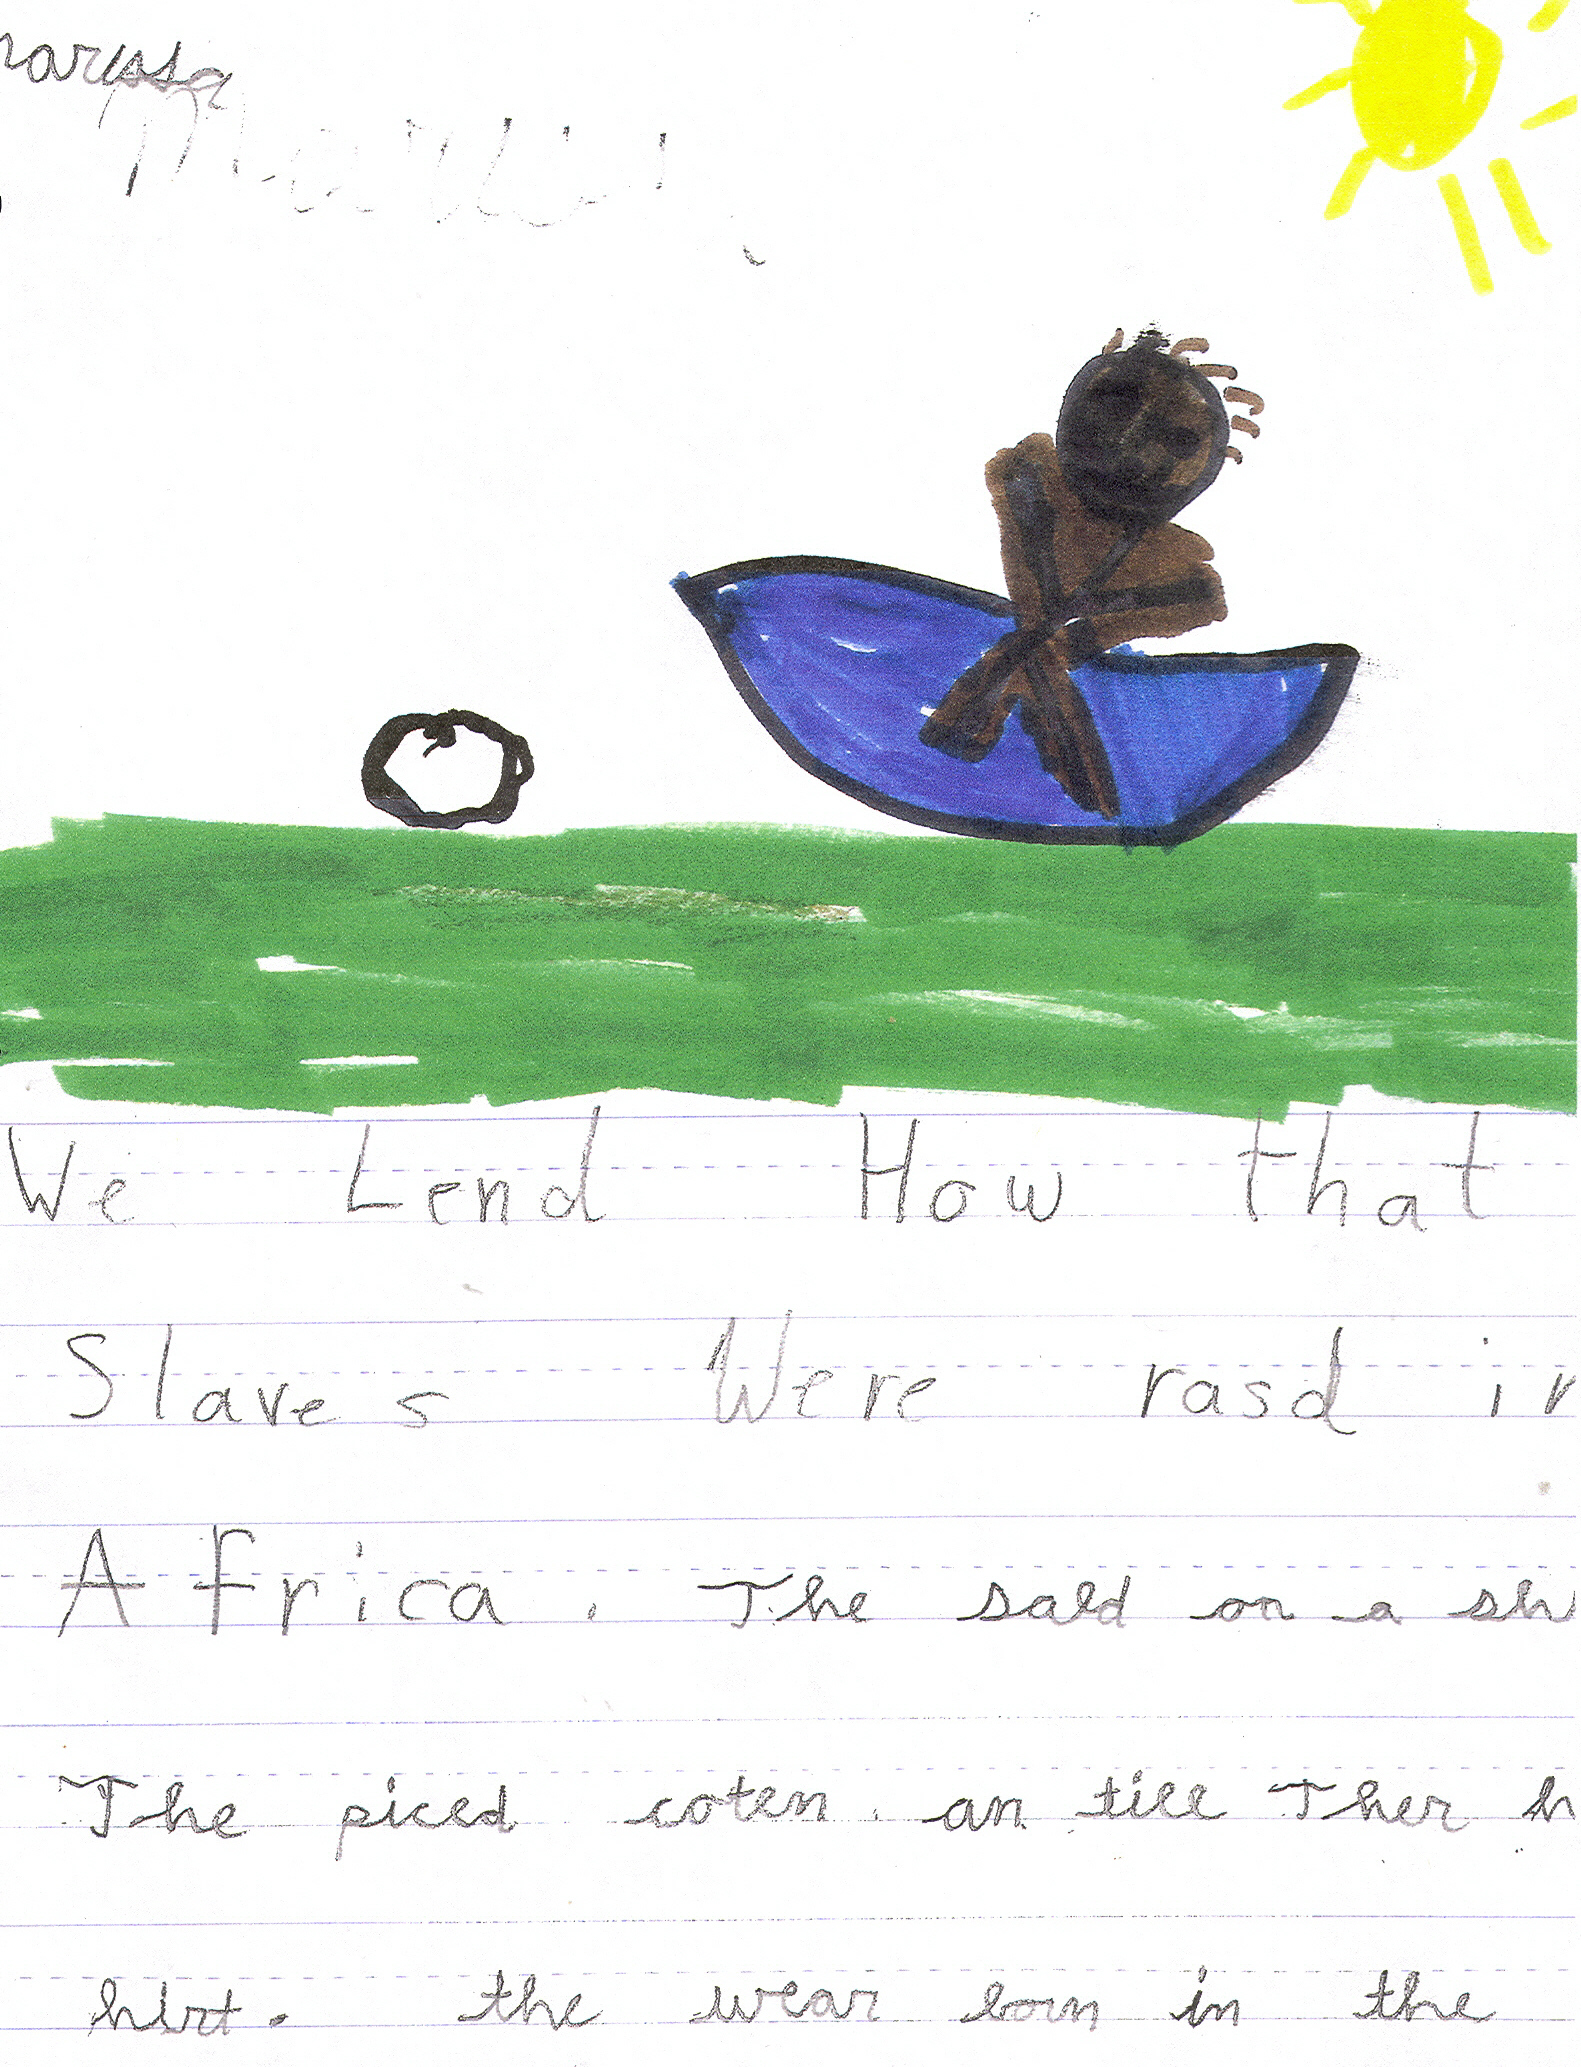 We Lend How that
Slaves Were rasd in
Africa. The sald on a sh
The piced coten. an till Ther h
hirt. the wear born in the